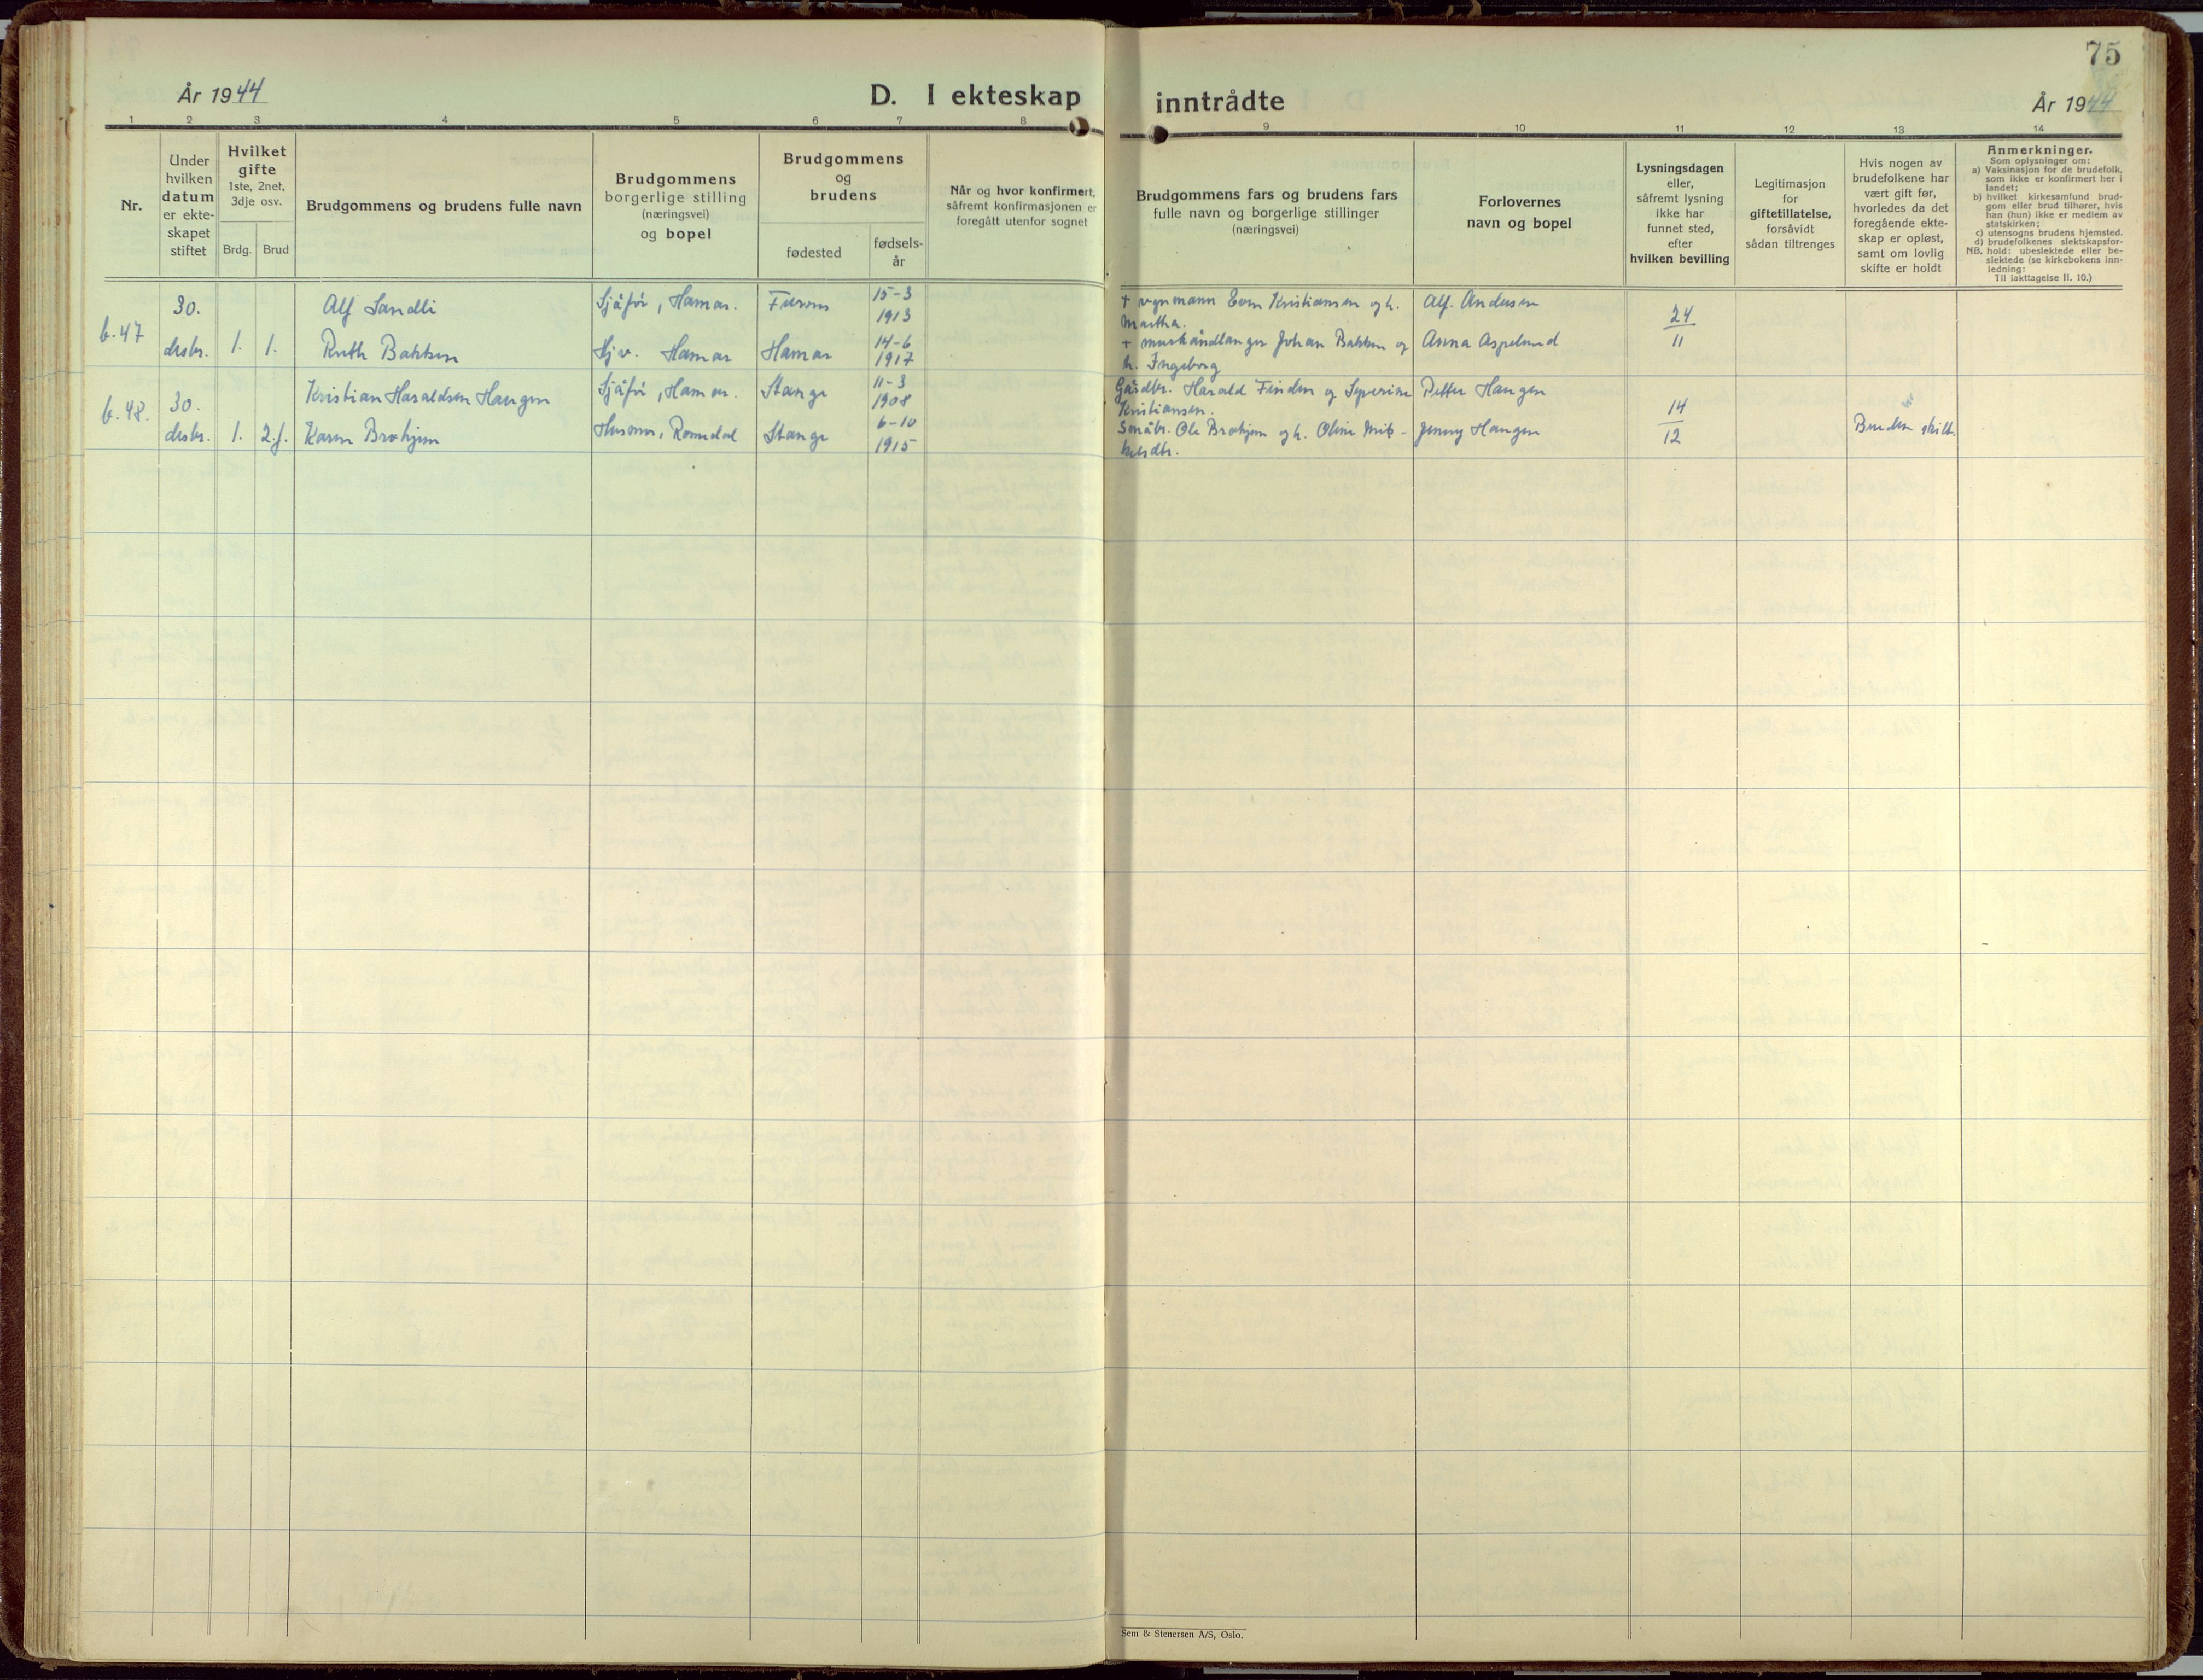 75
År 1944
D. I ekteskap inntrådte
År 1944
1 2 3 4 5 6 7 8 9 10 11 12 13 14
Nr.
Under
hvilken
datum
er ekte-
skapet
stiftet
Hvilket
gifte
1ste, 2net,
3dje osv.
Brdg.
Brud
Brudgommens og brudens fulle navn
Brudgommens
borgerlige stilling
(næringsvei)
og bopel
Brudgommens
og
brudens
fødested
fødsels-
år
Når og hvor konfirmert,
såfremt konfirmasjonen er
foregått utenfor sognet
Brudgommens fars og brudens fars
fulle navn og borgerlige stillinger
(næringsvei)
Forlovernes
navn og bopel
Lysningsdagen
eller,
såfremt lysning
ikke har
funnet sted,
efter
hvilken bevilling
Legitimasjon
for
giftetillatelse,
forsåvidt
sådan tiltrenges
Hvis nogen av
brudefolkene har
vært gift før,
hvorledes da det
foregående ekte-
skap er opløst,
samt om lovlig
skifte er holdt
Anmerkninger.
Som oplysninger om:
a) Vaksinasjon for de brudefolk,
som ikke er konfirmert her i
landet;
b) hvilket kirkesamfund brud-
gom eller brud tilhører, hvis
han (hun) ikke er medlem av
statskirken;
c) utensogns brudens hjemsted.
d) brudefolkenes slektskapsfor-
NB. hold: ubeslektede eller be-
slektede (se kirkebokens inn-
ledning:
Til iakttagelse II. 10.)
b.47
30.
desbr.
1. 1.
Alf Sandli
Ruth Bakken
Sjåfør, Hamar.
Hj.v. Hamar
Furnes
Hamar
15-3
1913
14-6
1917
+ vognmann Even Kristiansen og h.
Martha.
+ murhåndlanger Johan Bakken og
h. Ingeborg
Alf. Andersen
Anna Aspelund
24
11
b.48.
30.
desbr.
1. 2.f.
Kristian Haraldsen Haugen
Karen Brohjem
Sjåfør, Hamar.
Romedal
Stange
Stange
11-3
1908
6-10
1915
Gårdbr. Harald Finden og Severine
Kristiansen.
Småbr. Ole Brohjem og h. Oline Mik-
kelsdtr.
Petter Haugen
Jenny Haugen
14
12
Bruden skilt.
Sem & Stenersen A/S, Oslo.